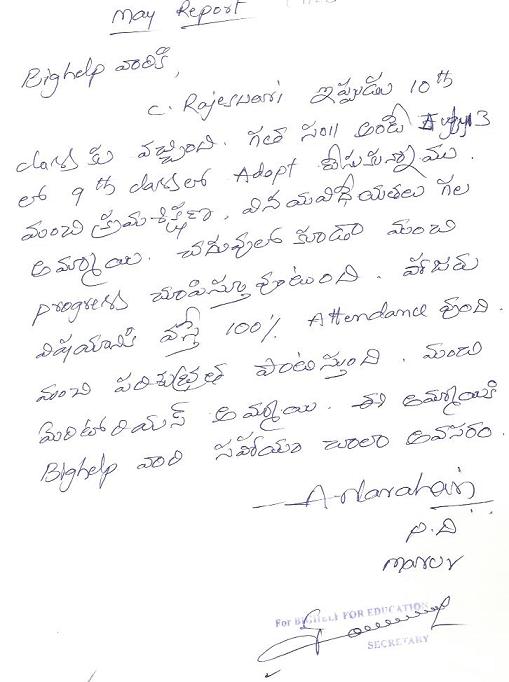 May Report
Bighelp వారికి,
C. Rajeswari ఇప్పుడు 10th
class కు వచ్చింది. గత సం॥ అంటే
లో 9th class లో Adopt తీసుకున్నాము.
మంచి క్రమశిక్షణ, వినయవిధేయతలు గల
అమ్మాయి. చదువులో కూడా మంచి
progress చూపిస్తూ వుంటుంది. హాజరు
విషయానికి వస్తే 100% Attendance వుంది.
మంచి పరిశుభ్రత పాటిస్తుంది. మంచి
మెరిటోరియస్ అమ్మాయి. ఈ అమ్మాయికి
Bighelp వారి సహాయం చాలా అవసరం.
A. Narahari
P.D
For BIGHELP FOR EDUCATION
SECRETARY